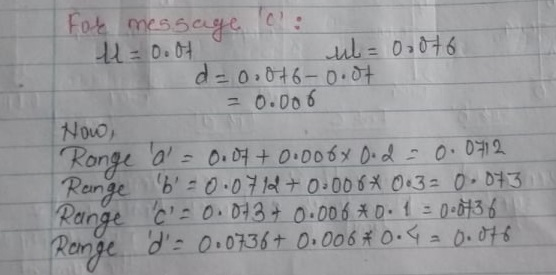 For message 'c':
ll = 0.07 ul = 0.076
d = 0.076 - 0.07
= 0.006
Now,
Range 'a' = 0.07 + 0.006 x 0.2 = 0.0712
Range 'b' = 0.0712 + 0.006 * 0.3 = 0.073
Range 'c' = 0.073 + 0.006 * 0.1 = 0.0736
Range 'd' = 0.0736 + 0.006 * 0.4 = 0.076